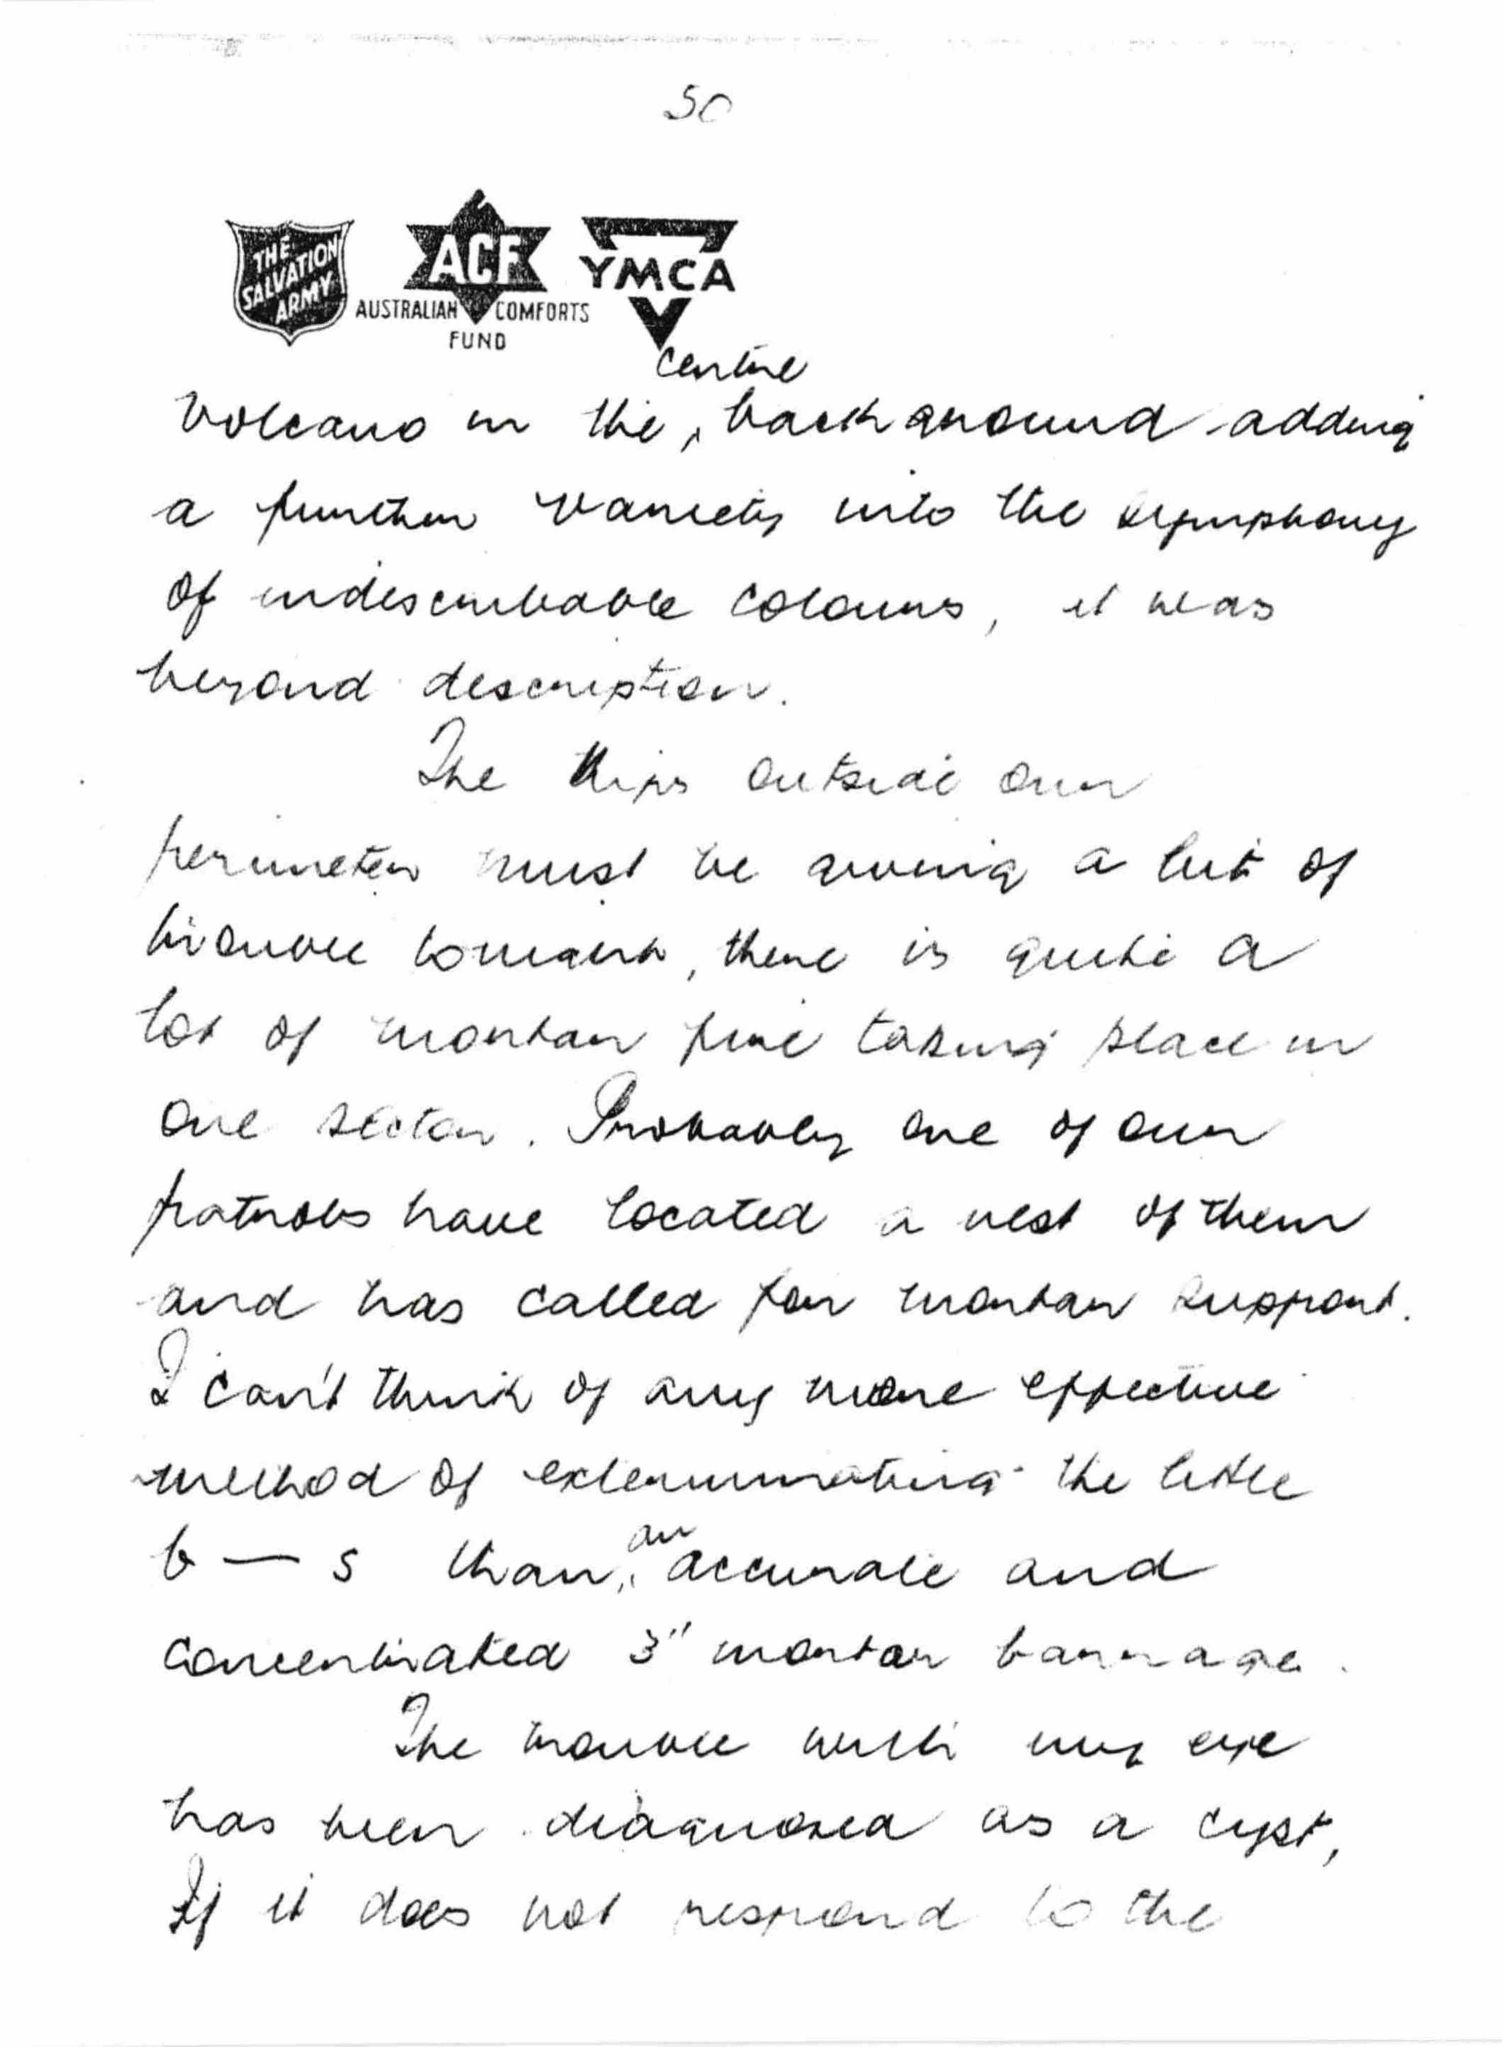 50
THE
SALVATION
ARMY
ACF
AUSTRALIAN COMFORTS
FUND
YMCA
centre
volcano in the, background adding
a further variety into the symphony
of indescribable colours, it was
beyond description.
The Nips outside our
perimeter must be giving a bit of
trouble tonight, there is quite a
lot of mortar fire taking place in
one sector. Probably one of our
patrols have located a nest of them
and has called for mortar support.
I can't think of any more effective
method of exterminating the little
an
b — s than accurate and
concentrated 3" mortar barrage.
The trouble with my eye
has been diagnosed as a cyst,
If it does not respond to the